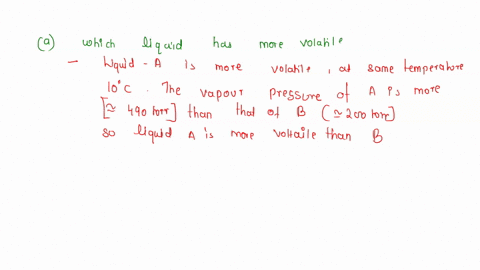 (a) which liquid has more volatile
- Liquid - A is more volatile, at same temperature
10°C. The vapour pressure of A is more
[≃ 490 torr] than that of B (≃ 200 torr]
so liquid A is more voltaile than B